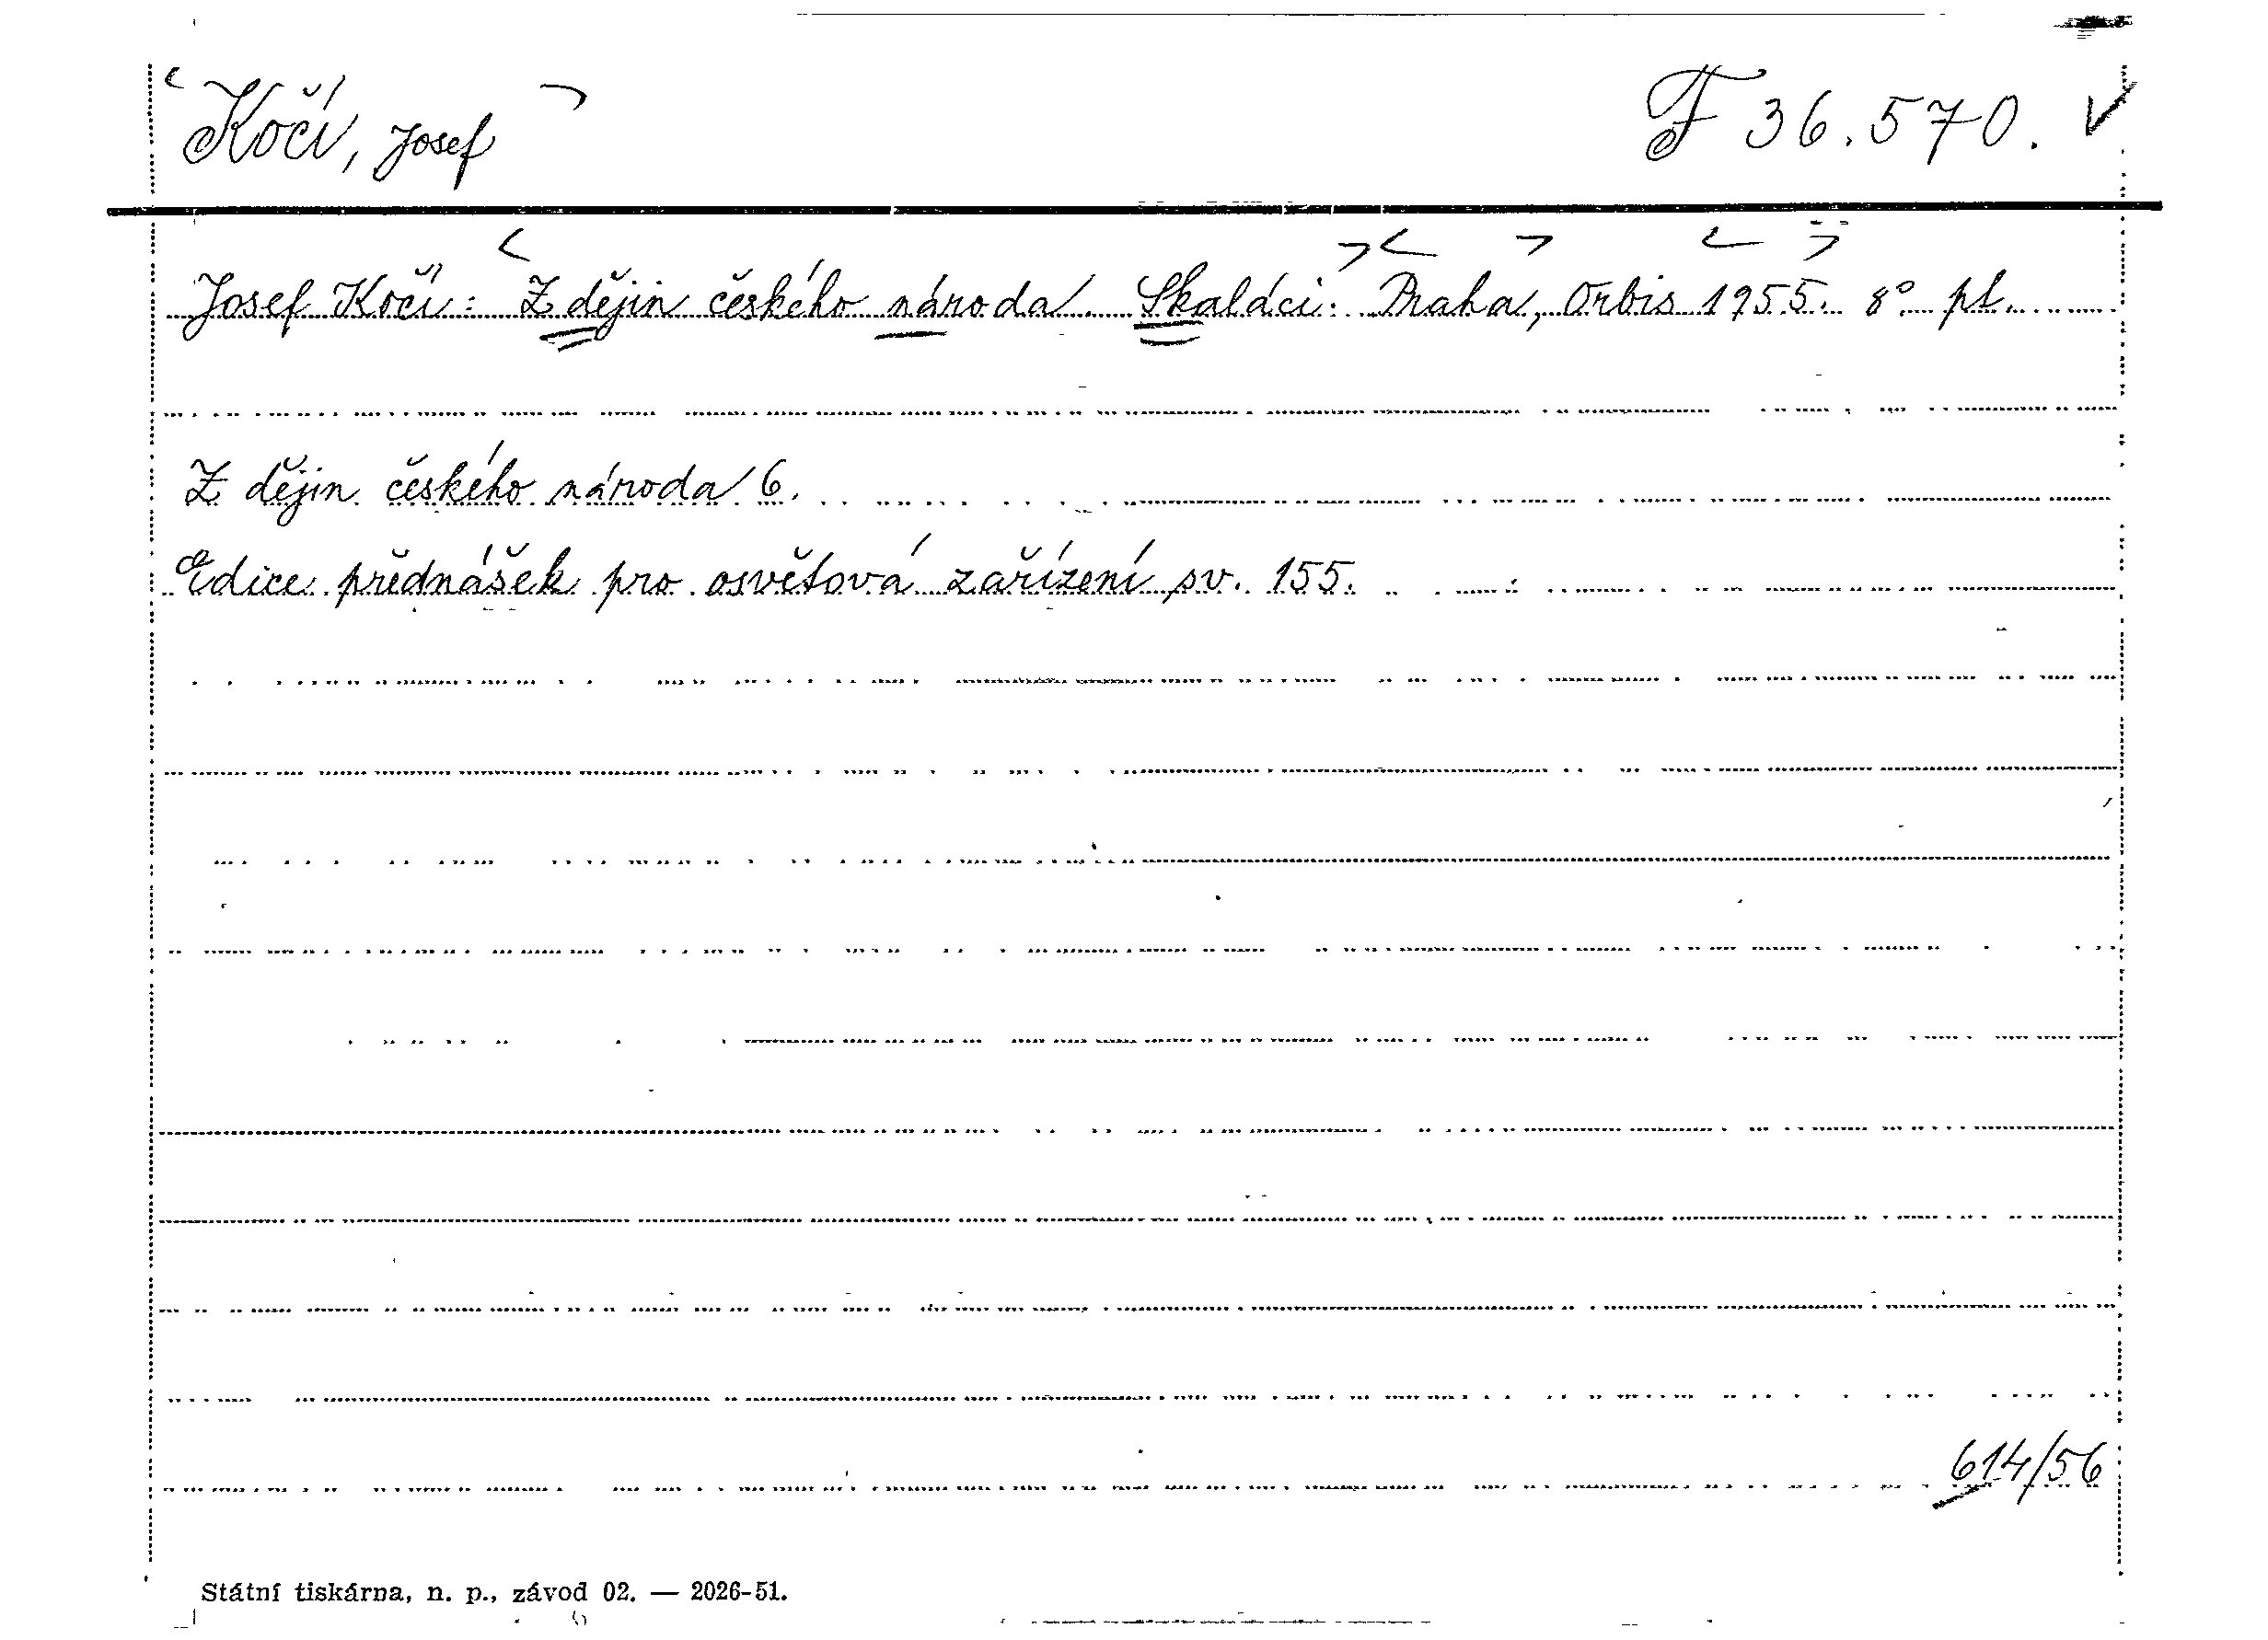 Kočí, Josef F 36.570.
Josef Kočí: Z dějin českého národa. Skaláci. Praha, Orbis 1955. 8° pt.
Z dějin českého národa 6.
Edice přednášek pro osvětová zařízení sv. 155.
614/56
Státní tiskárna, n. p., závod 02. — 2026-51.